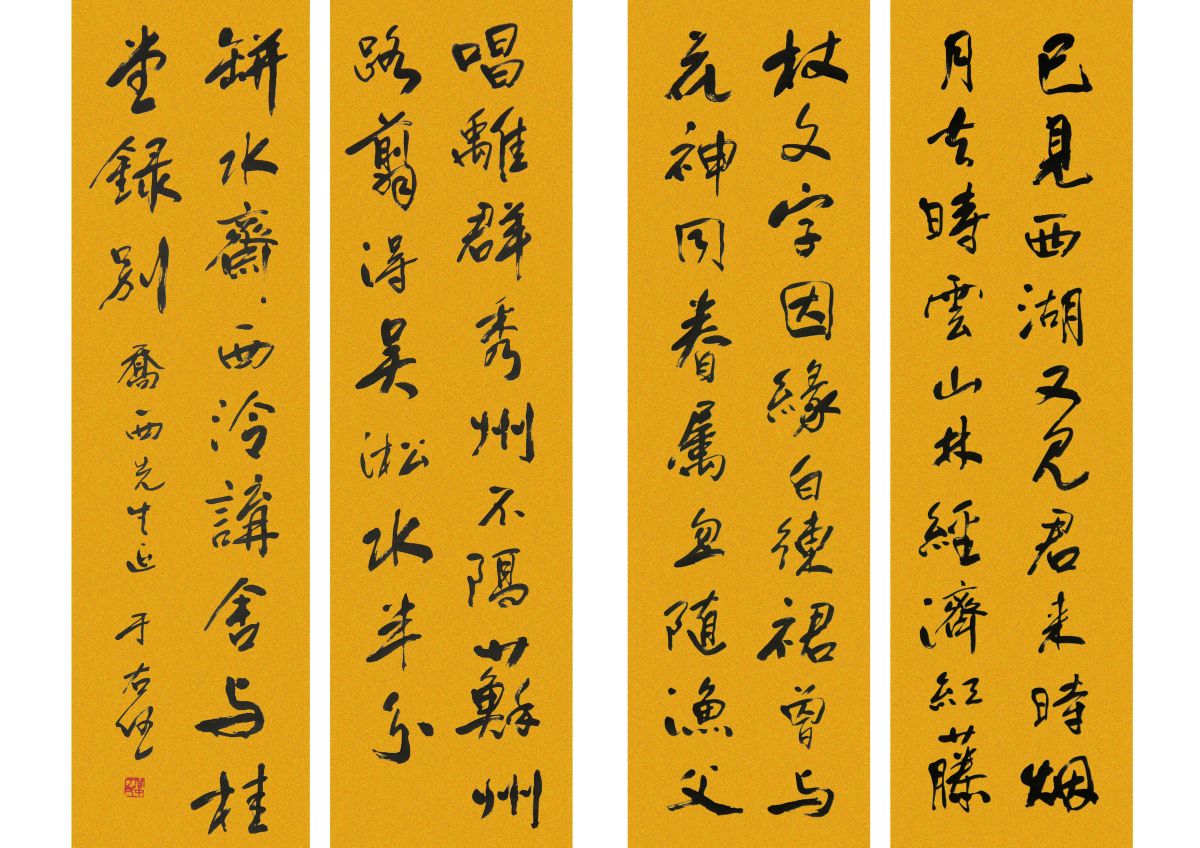 已見西湖又見君来時烟
月去時雲山林經濟紅藤
杖文字因緣白練裙曾与
花神同眷属忽随漁父
唱離群秀州不隔蘇州
路翦得吴淞水半分
缾水齋·西泠講舍与桂
堂録别 喬西先生正 于右任